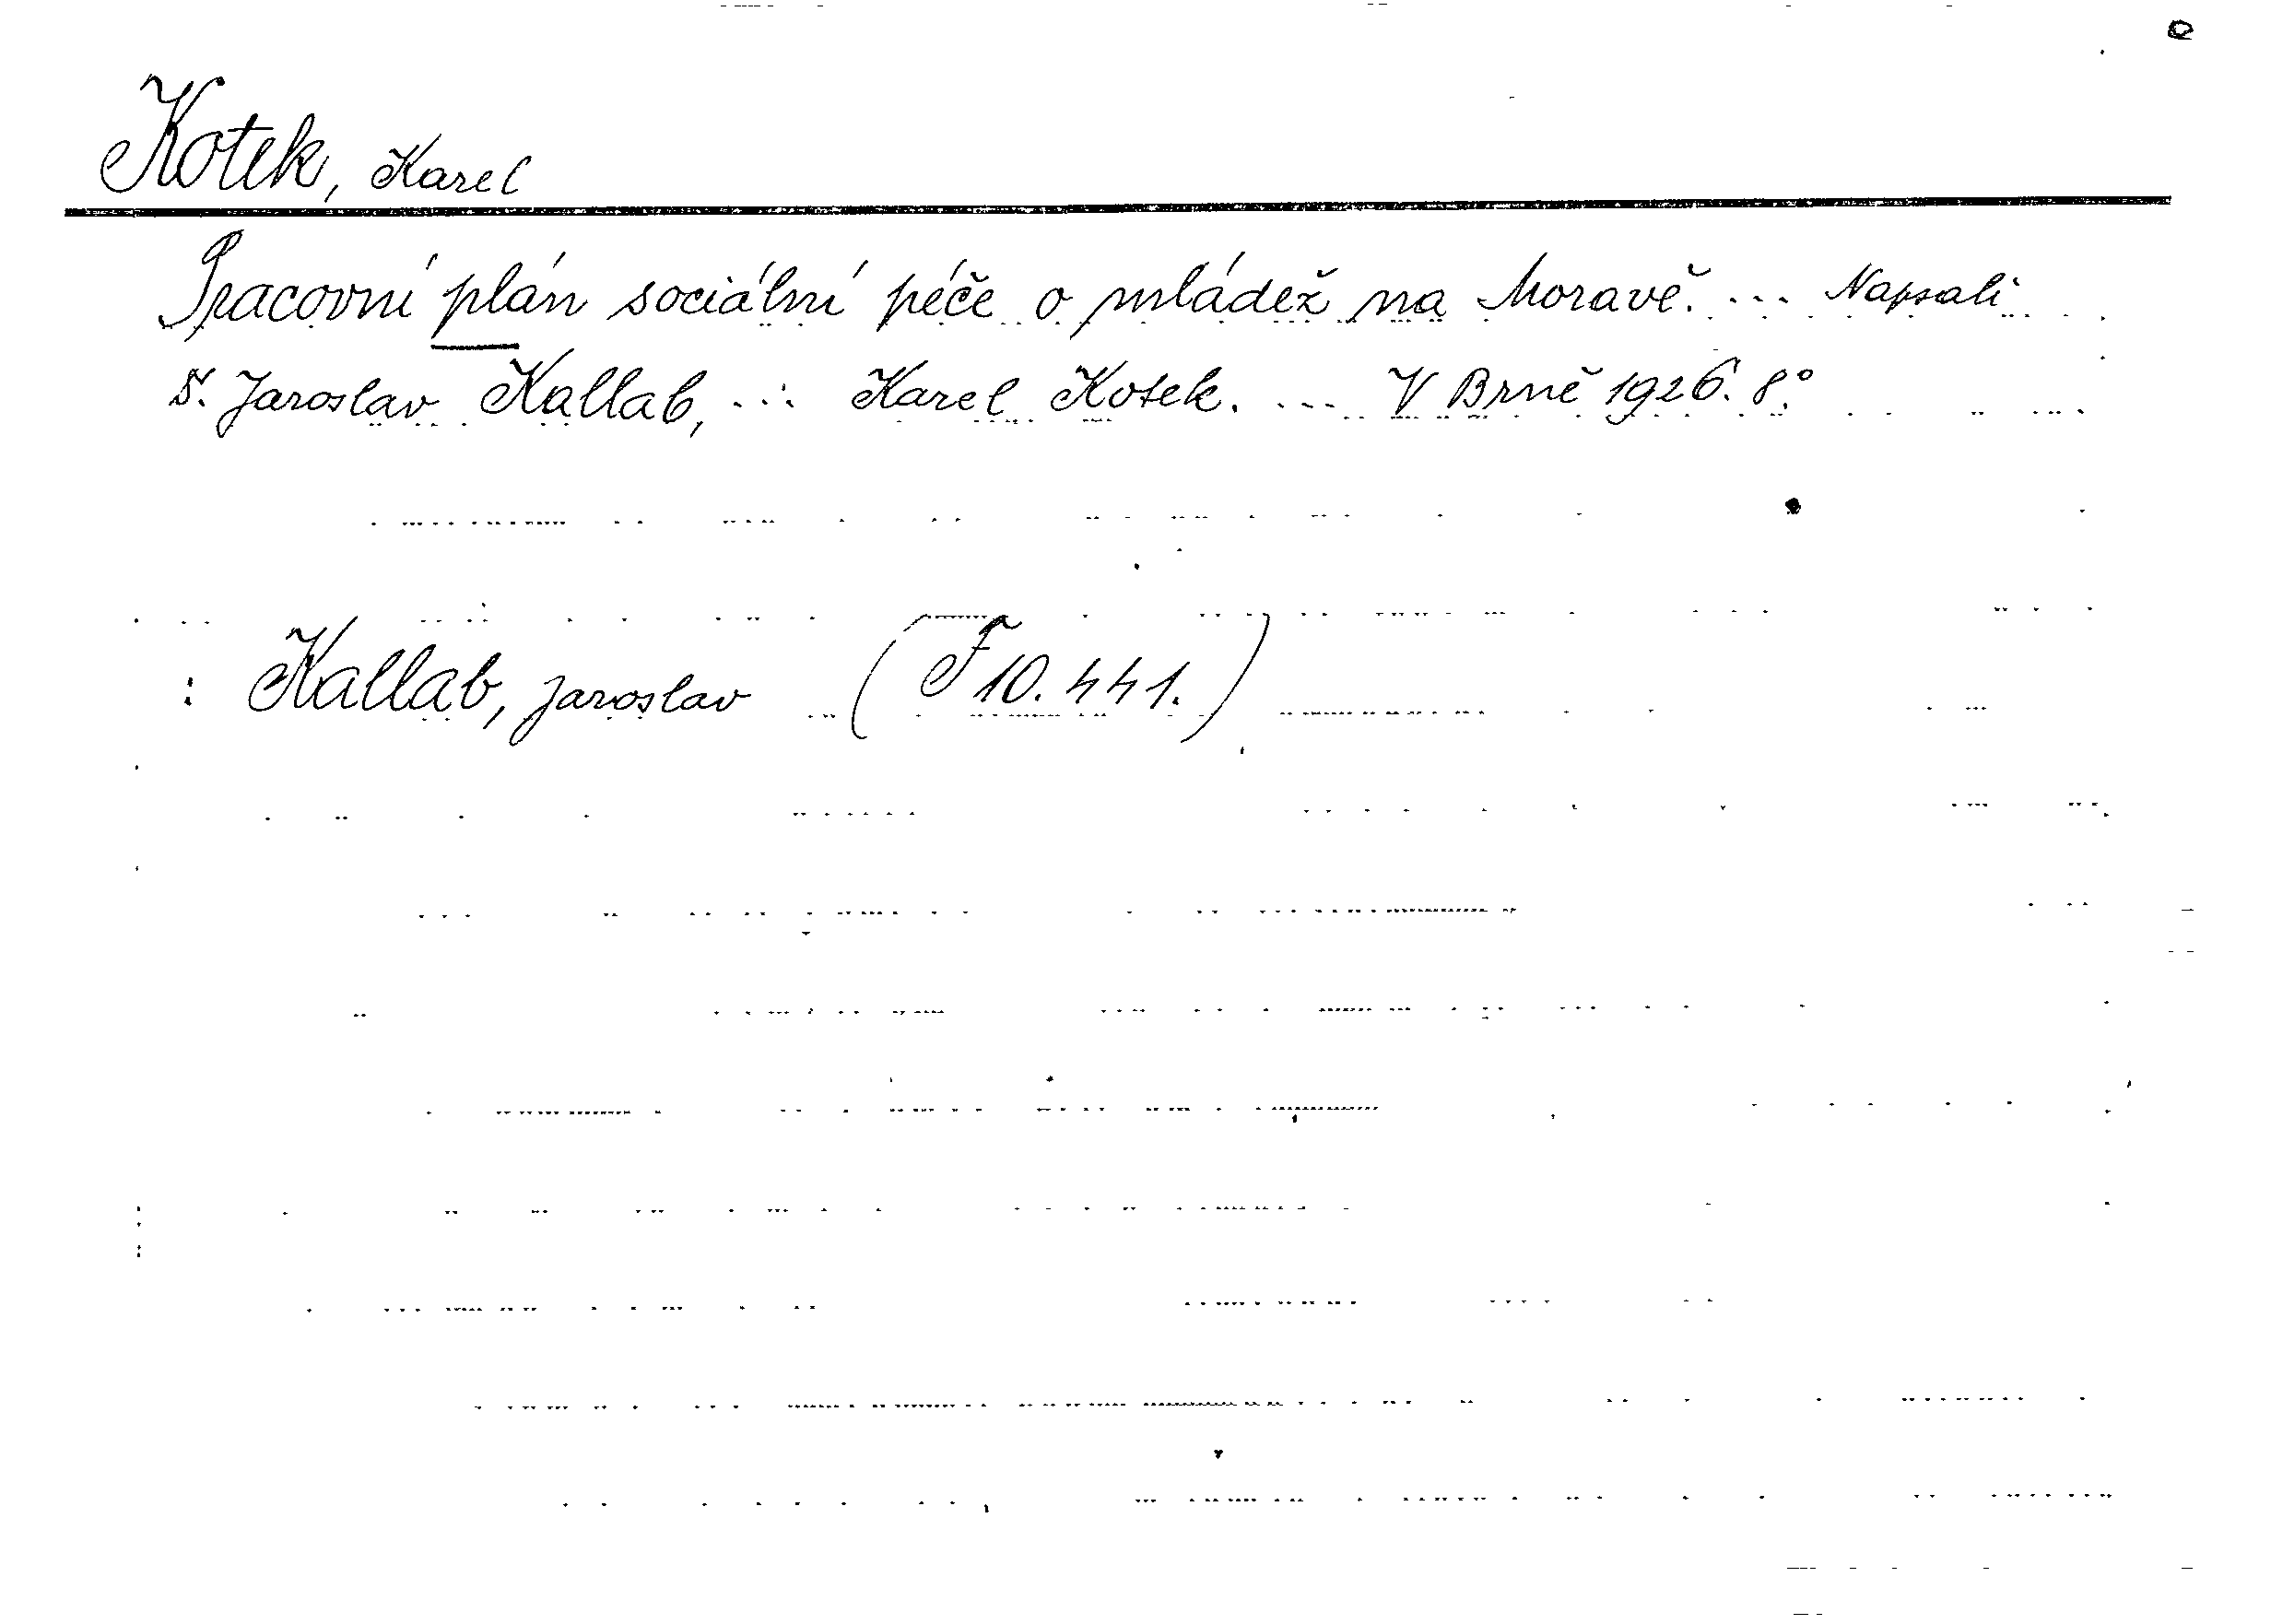 Kotek, Karel
Pracovní plán sociální péče o mládež na Moravě. ... Napsali
Jaroslav Kallab, ... Karel Kotek. ... V Brně 1926. 8.°
: Kallab, Jaroslav (F 10.441.)